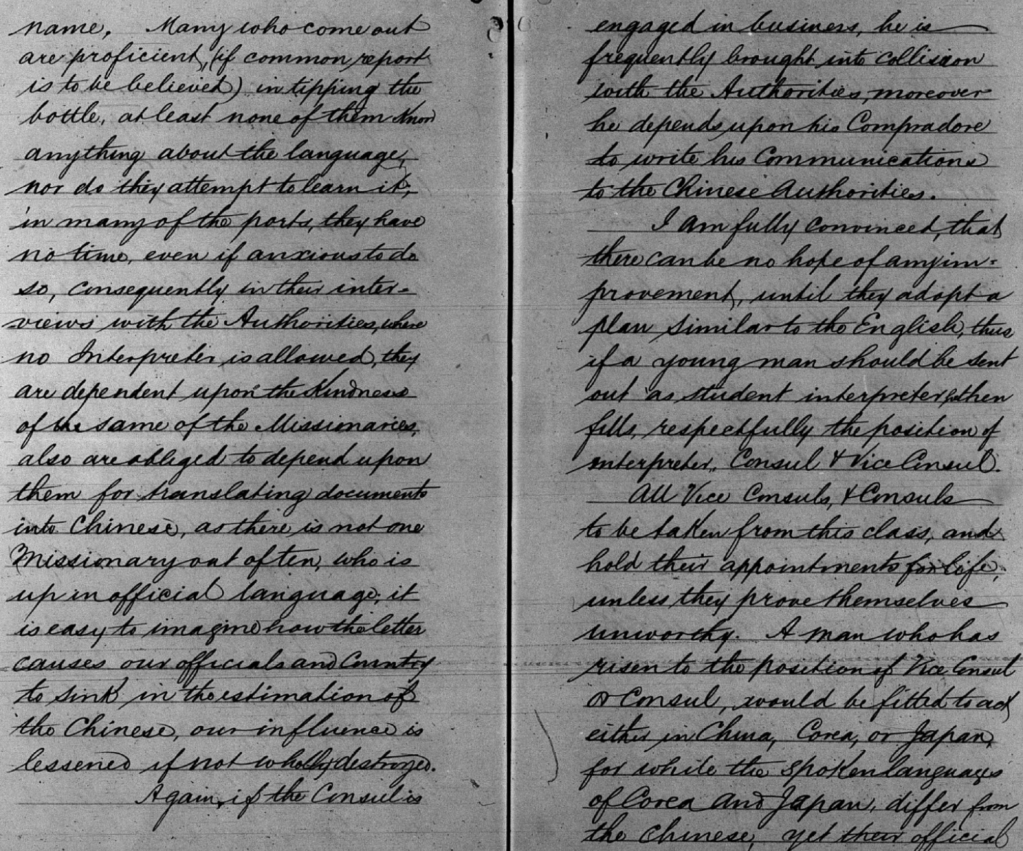 name. Many who come out
are proficient, (if common report
is to be believed) in tipping the
bottle, at least none of them know
anything about the language,
nor do they attempt to learn it,
in many of the ports, they have
no time, even if anxious to do
so, consequently in their inter-
views with the Authorities, where
no Interpreter is allowed, they
are dependent upon the kindness
of the same of the Missionaries,
also are obliged to depend upon
them for translating documents
into Chinese, as there is not one
Missionary out of ten, who is
up in official language, it
is easy to imagine how the letter
causes our officials and Country
to sink in the estimation of
the Chinese, our influence is
lessened if not wholly destroyed.
Again, if the Consul is
engaged in business, he is
frequently brought into collision
with the Authorities, moreover
he depends upon his Compradore
to write his Communications
to the Chinese Authorities.
I am fully convinced, that
there can be no hope of any im-
provement, until they adopt a
plan similar to the English, thus
if a young man should be sent
out as student interpreter & then
fills, respectfully the position of
interpreter, Consul & Vice Consul.
All Vice Consuls, & Consuls
to be taken from this class, and
hold their appointments for life,
unless they prove themselves
unworthy. A man who has
risen to the position of Vice Consul
or Consul, would be fitted to act
either in China, Corea, or Japan,
for while the spoken languages
of Corea and Japan, differ from
the Chinese, yet their official